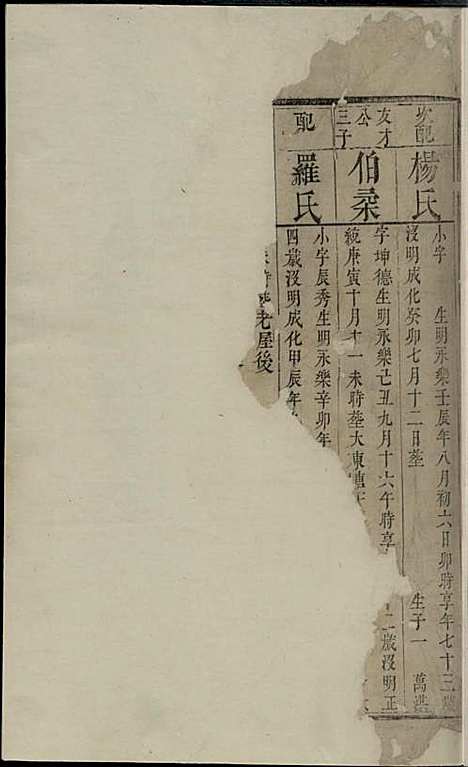 次配
楊氏
小字 生明永樂壬辰年八月初六日卯時享年七十三歲
沒明成化癸卯七月十二日塟 生子一 萬
友才公三子
伯桑
字坤德生明永樂己丑九月十六午時享 二歲沒明正
統庚寅十月十一未時塟大東
配
羅氏
小字辰秀生明永樂辛卯年
四歲沒明成化甲辰年
老屋後